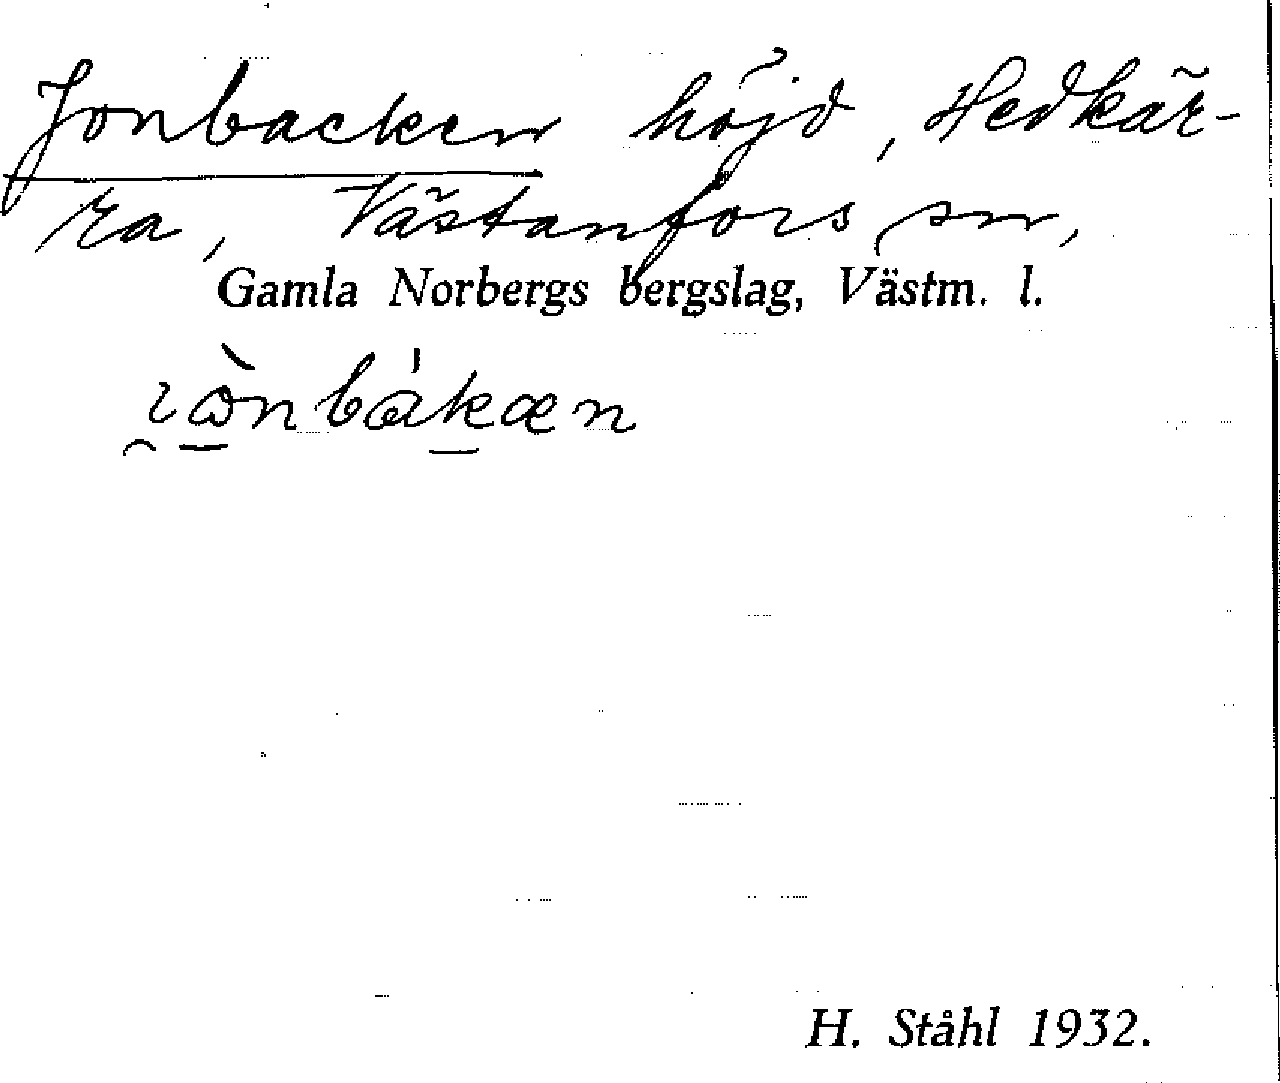 Jonbacken höjd, Hedkär-
ra, Västanfors sn,
Gamla Norbergs bergslag, Västm. l.
H. Ståhl 1932.